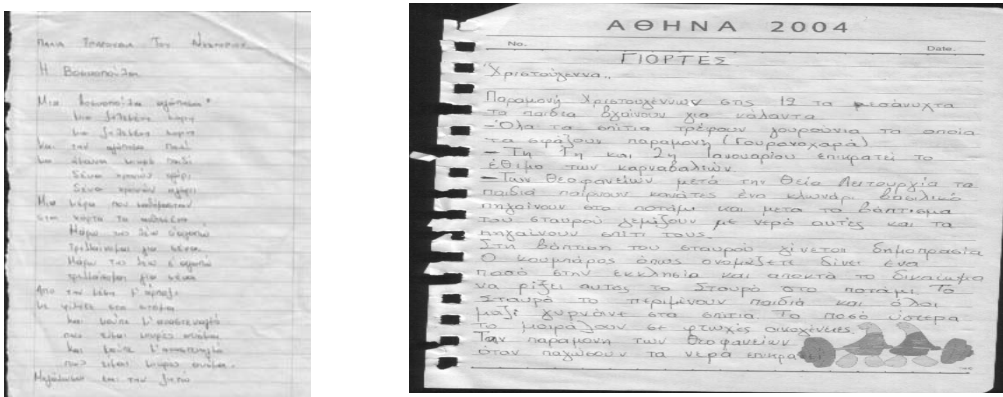 Παλιά Τραγούδια Του
Η Βοσκοπούλα
Μια Βοσκοπούλα αγάπησα
μια ζηλεμένη κόρη
μια ζηλεμένη κόρη
και την αγάπησα πολύ
δέκα χρονών αγόρι
δέκα χρονών αγόρι
Μια μέρα που καθόμασταν
στα χόρτα τα
Μάρω της λέω σ'αγαπώ
τρελαίνομαι για σένα
Μάρω της λέω σ'αγαπώ
τρελαίνομαι για σένα
Από την μέση μ'άρπαξε
με φίλησε στο στόμα
και μούπε μ'αναστεναγμό
που είσαι μικρός ακόμα
και μούπε μ'αναστεναγμό
που είσαι μικρός ακόμα.
Μεγάλωσα και την ζητώ
ΑΘΗΝΑ 2004
No. Date.
ΓΙΟΡΤΕΣ
Χριστούγεννα..
Παραμονή Χριστουγέννων στις 12 τα μεσάνυχτα
τα παιδιά βγαίνουν για κάλαντα
-Όλα τα σπίτια τρέφουν γουρούνια τα οποία
τα σφάζουν παραμονή (Γουρονοχαρά)
- Τη 1η και 2η Ιανουαρίου επικρατεί το
έθιμο των καρναβαλιών.
-Των Θεοφανείων μετά την Θεία Λειτουργία τα
παιδιά παίρνουν κανάτες ένα κλωνάρι βασιλικό
πηγαίνουν στο ποτάμι και μετά το βάπτισμα
του σταυρού γεμίζουν με νερό αυτές και τα
πηγαίνουν σπίτι τους.
Στη βάπτιση του σταυρού γίνεται δημοπρασία
Ο κουμπάρος όπως ονομάζετε δίνει ένα
ποσό στην εκκλησία και αποκτά το δικαίωμα
να ρίξει αυτός το Σταυρό στο ποτάμι. Το
Σταυρό το περιμένουν παιδιά και όλοι
μαζί γυρνάνε στα σπίτια. Το ποσό ύστερα
το μοιράζουν σε φτωχές οικογένειες.
Την παραμονή των Θεοφανείων
όταν παγώσουν τα νερά επικρατεί